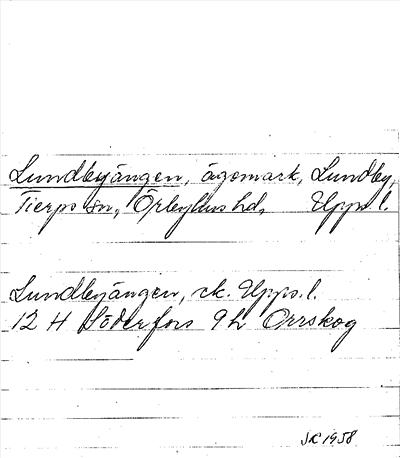 Lundbyängen, ägomark, Lundby,
Tierps sn, Örbyhus hd, Upps. l.
Lundbyängen, ek. Upps. l.
12 H Söderfors 9 h Orrskog
SK 1958